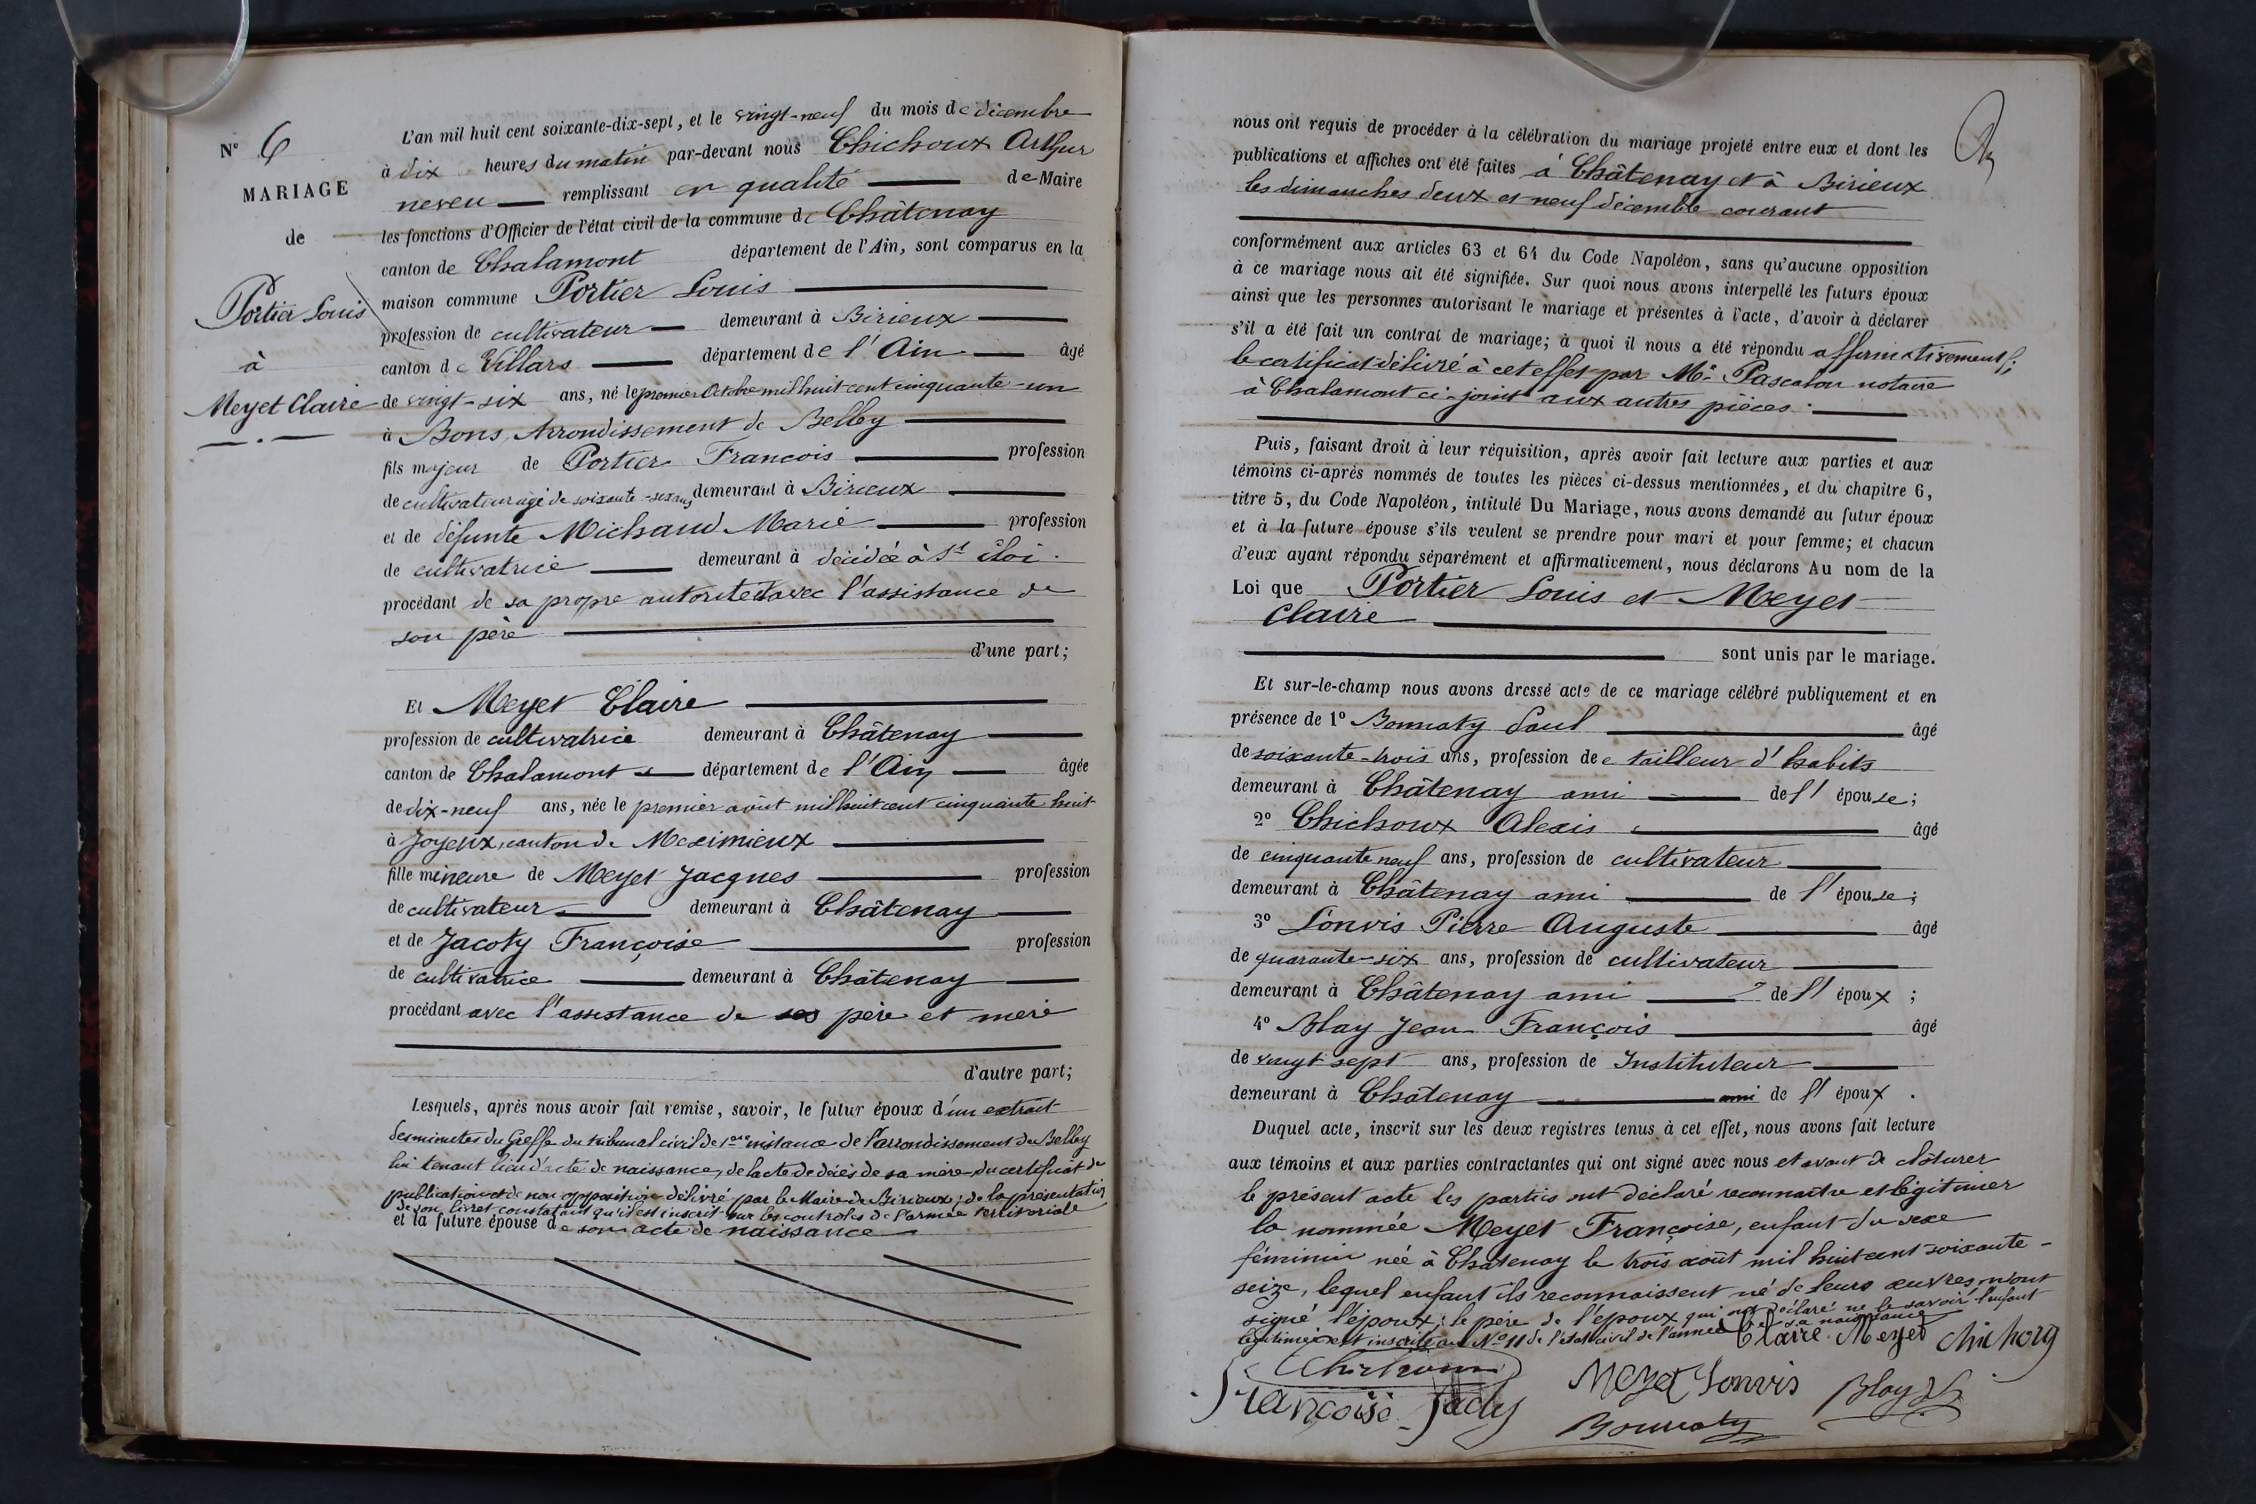 N° 6
MARIAGE
de
Portier Louis
à
Meyet Claire
L'an mil huit cent soixante-dix-sept, et le vingt-neuf du mois de décembre
à dix heures du matin par-devant nous Chichoux Arthur
neveu remplissant en qualité de Maire
les fonctions d'Officier de l'état civil de la commune de Châtenay
canton de Chalamont département de l'Ain, sont comparus en la
maison commune Portier Louis
profession de cultivateur demeurant à Birieux
canton de Villars département de l'Ain âgé
de vingt-six ans, né le premier Octobre mil huit cent cinquante-un
à Bons, Arrondissement de Belley
fils majeur de Portier Francois profession
de cultivateur agé de soixante-six ans demeurant à Birieux
et de défunte Michaud Marie profession
de cultivatrice demeurant à décidée à St Eloi.
procédant de sa propre autorité et avec l'assistance de
son père
d'une part;
Et Meyet Claire
profession de cultivatrice demeurant à Châtenay
canton de Chalamont département de l'Ain âgée
de dix-neuf ans, née le premier août mil huit cent cinquante huit
à Joyeux, canton de Meximieux
fille mineure de Meyet Jacques profession
de cultivateur demeurant à Châtenay
et de Jacoty Françoise profession
de cultivatrice demeurant à Châtenay
procédant avec l'assistance de ses père et mère
d'autre part;
Lesquels, après nous avoir fait remise, savoir, le futur époux d'un extrait
des minutes du Greffe du tribunal civil de 1ère instance de l'arrondissement de Belley
lui tenant lieu d'acte de naissance, de l'acte de décès de sa mère, du certificat de
publication et de non opposition délivré par le Maire de Birieux; de la présentation
de son livret constatant qu'il est inscrit sur les controles de l'armée territoriale
et la future épouse de son acte de naissance
nous ont requis de procéder à la célébration du mariage projeté entre eux et dont les
publications et affiches ont été faites à Châtenay et à Birieux
les dimanches deux et neuf décembre courant
conformément aux articles 63 et 64 du Code Napoléon, sans qu'aucune opposition
à ce mariage nous ait été signifiée. Sur quoi nous avons interpellé les futurs époux
ainsi que les personnes autorisant le mariage et présentes à l'acte, d'avoir à déclarer
s'il a été fait un contrat de mariage; à quoi il nous a été répondu affirmativement;
le certificat délivré à cet effet par Me Pascalon notaire
à Chalamont ci-joint aux autres pièces.
Puis, faisant droit à leur réquisition, après avoir fait lecture aux parties et aux
témoins ci-après nommés de toutes les pièces ci-dessus mentionnées, et du chapitre 6,
titre 5, du Code Napoléon, intitulé Du Mariage, nous avons demandé au futur époux
et à la future épouse s'ils veulent se prendre pour mari et pour femme; et chacun
d'eux ayant répondu séparément et affirmativement, nous déclarons Au nom de la
Loi que Portier Louis et Meyet
Claire
sont unis par le mariage.
Et sur-le-champ nous avons dressé acte de ce mariage célébré publiquement et en
présence de 1° Bonnaty Paul âgé
de soixante-trois ans, profession de tailleur d'habits
demeurant à Châtenay ami de l'épouse;
2° Chichoux Alexis âgé
de cinquante neuf ans, profession de cultivateur
demeurant à Châtenay ami de l'épouse;
3° Lonvis Pierre Auguste âgé
de quarante-six ans, profession de cultivateur
demeurant à Châtenay ami de l'époux;
4° Blay Jean François âgé
de vingt sept ans, profession de Instituteur
demeurant à Châtenay ami de l'époux.
Duquel acte, inscrit sur les deux registres tenus à cet effet, nous avons fait lecture
aux témoins et aux parties contractantes qui ont signé avec nous et avant de clôturer
le présent acte les parties ont déclaré reconnaître et légitimer
la nommée Meyet Françoise, enfant du sexe
féminin née à Châtenay le trois août mil huit cent soixante-
seize, lequel enfant ils reconnaissent né de leurs œuvres, n'ont
signé l'époux; le père de l'époux qui ont déclaré ne le savoir l'enfant
légitimée est inscrite au N° 11 de l'état civil de l'année de sa naissance
Claire Meyet
Chichoux
Françoise
Meyet Lonvis Blay
Bonnaty